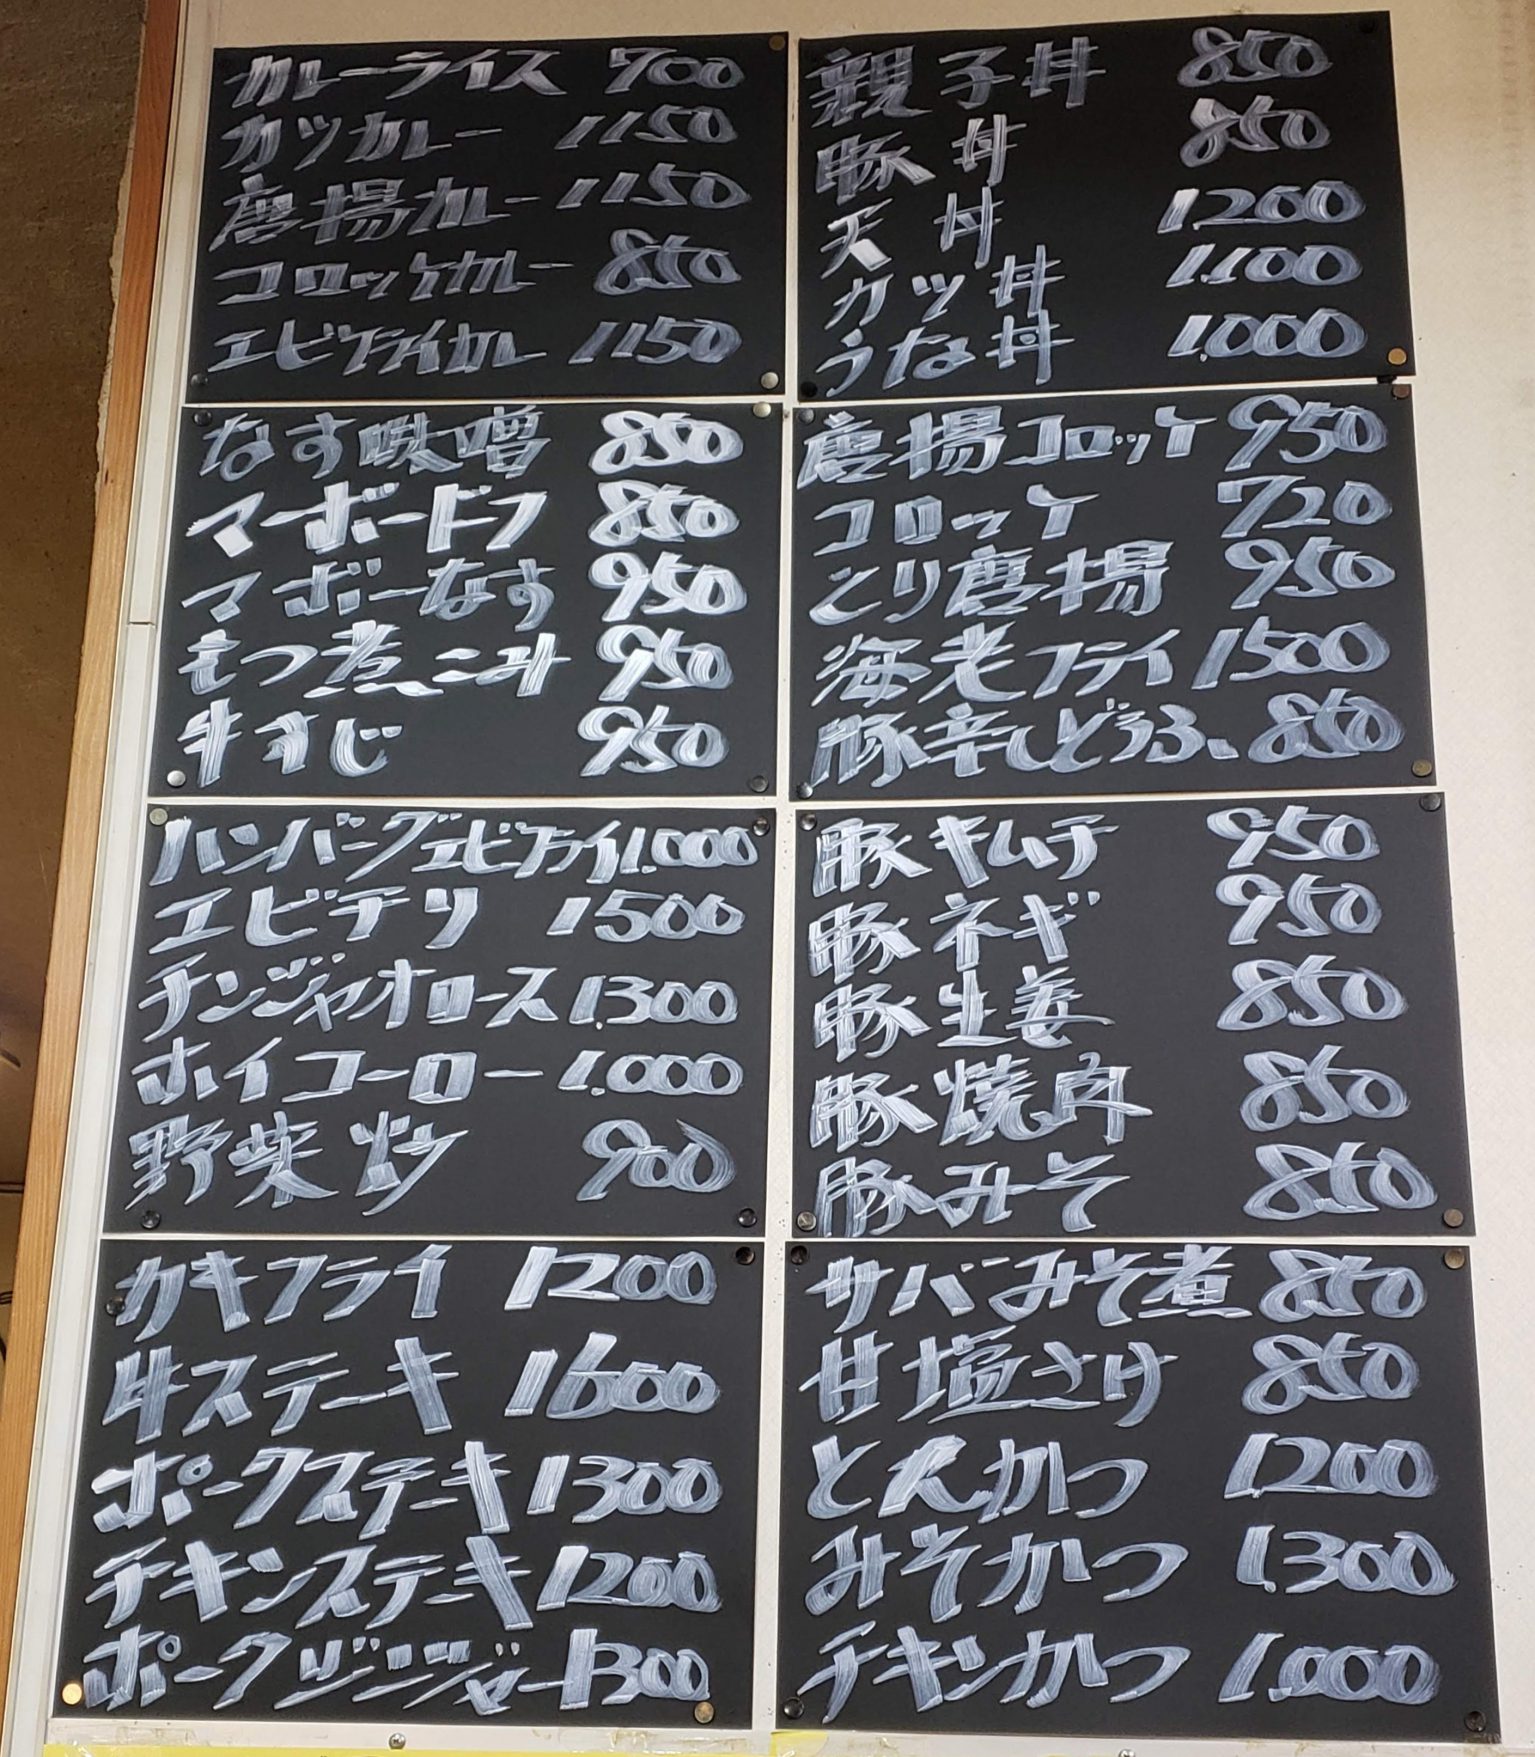 カレーライス 700
カツカレー 1150
唐揚カレー 1150
コロッケカレー 850
エビフライカレー 1150
なす味噌 850
マーボードフ 850
マーボーなす 950
もつ煮こみ 950
牛すじ 950
ハンバーグエビフライ 1.000
エビチリ 1500
チンジャオロース 1.300
ホイコーロー 1.000
野菜炒 900
カキフライ 1200
牛ステーキ 1600
ポークステーキ 1300
チキンステーキ 1200
ポークジンジャー 1300
親子丼 850
豚丼 850
天丼 1.200
カツ丼 1.100
うな丼 1.000
唐揚コロッケ 950
コロッケ 720
とり唐揚 950
海老フライ 1500
豚辛しどうふ 850
豚キムチ 950
豚ネギ 950
豚生姜 850
豚焼肉 850
豚みそ 850
サバみそ煮 850
甘塩さけ 850
とんかつ 1.200
みそかつ 1.300
チキンかつ 1.000